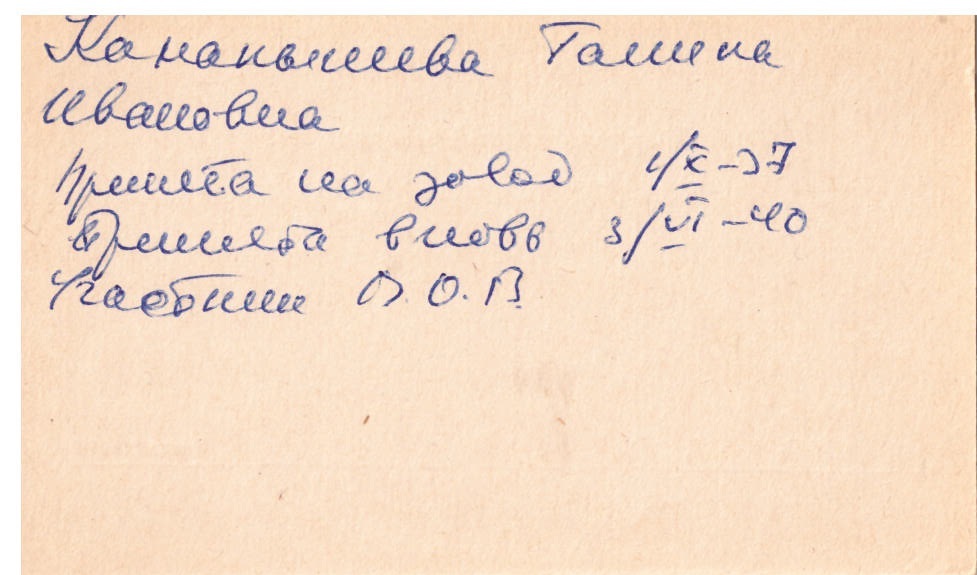 Кананышева Галина
Ивановна
Принята на завод 1/X-37
Принята вновь 3/VI-40
Участник В.О.В.